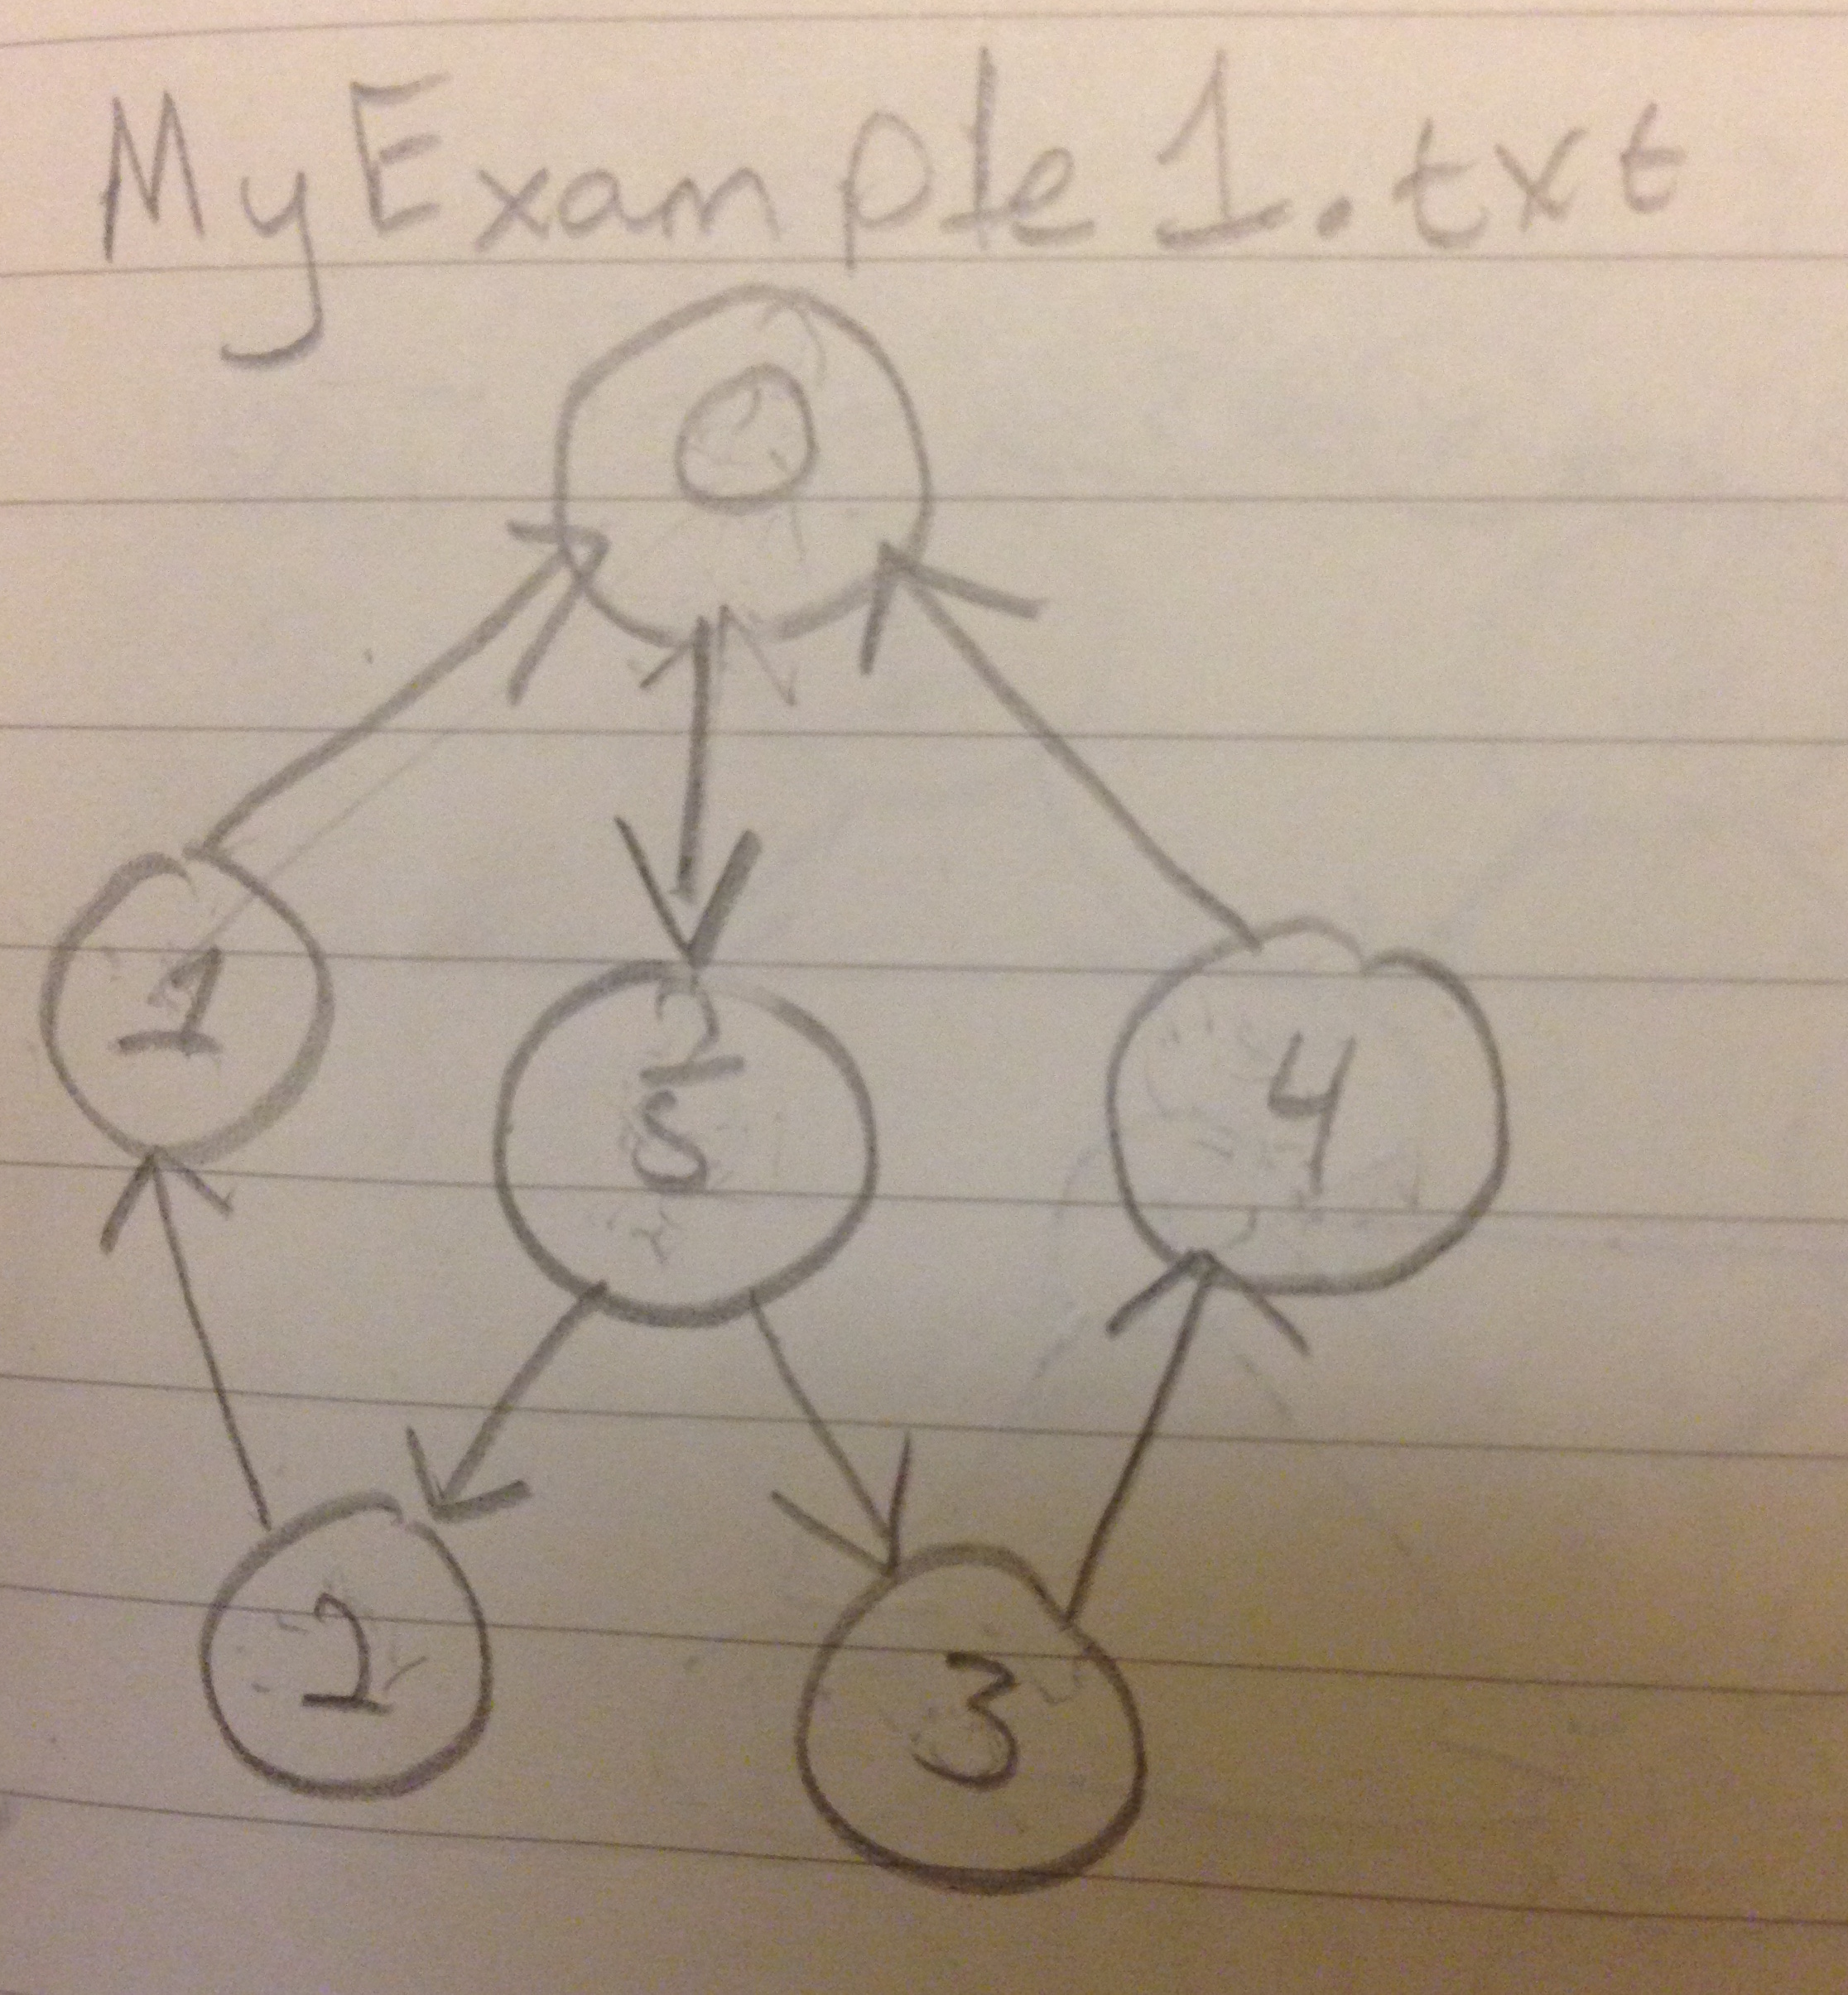 MyExample1.txt
0
1
5
4
2
3